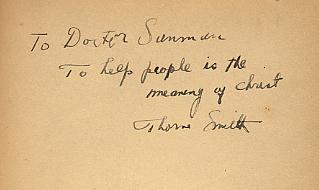 To Doctor Sunman
To help people is the
meaning of Christ
Thorne Smith